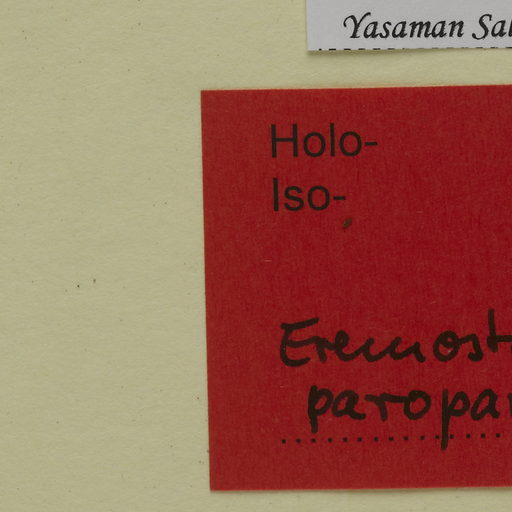 Yasaman Sal
Holo-
Iso-
Eremost
paropa